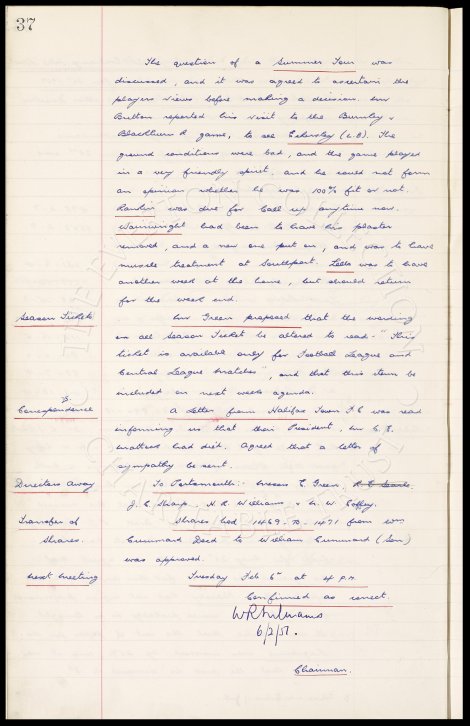 37
The question of a Summer Tour was
discussed, and it was agreed to ascertain the
players views before making a decision. Mr
Britton reported his visit to the Burnley v
Blackburn R game, to see Eckersley (L.B). The
ground conditions were bad, and the game played
in a very friendly spirit, and he could not form
an opinion whether he was 100% fit or not.
Rankin was due for call up anytime now.
Wainwright had been to have his plaster
removed, and a new one put on, and was to have
muscle treatment at Southport. Lello was to have
another week at the home, but should return
for the week end.
Season Tickets Mr Green proposed that the wording
on all Season Ticket be altered to read - "This
ticket is available only for Football League and
Central League Matches", and that this item be
included on next weeks agenda.
Correspondence A Letter from Halifax Town F.C was read
informing us that their President, Mr C.E.
had died. Agreed that a letter of
sympathy be sent.
Directors Away To Portsmouth:- Messrs C Green,
J. C. Sharp. H. R. Williams & N. W. Coffey.
Transfer of Shares Nos 1469-70-1471 from Wm
Shares. Cummard Decd to William Cummard (Son)
was approved.
Next Meeting Tuesday Feb 6th at 4 P.M.
Confirmed as correct
6/2/51.
Chairman.